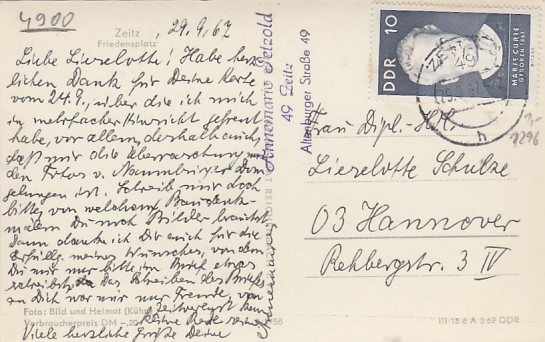 4900
Zeitz
Friedensplatz
29.9.67
Liebe Lieselotte! Habe herz-
lichen Dank für Deine Karte
vom 24.9., über die ich mich
in mehrfacher Hinsicht gefreut
habe, vor allem, deshalb auch,
daß mir die Überraschung mit
den Fotos v. Naumburger Dom
gelungen ist. Schreib mir doch
bitte, von welchem Baudenk-
mälern Du noch Bilder brauchst
Dann danke ich Dir auch für die
Erfüllg. meines Wunsches, von dem
Du mir nur bitte, im Brief etwas
schreibst. Das Schreiben des Briefes
an Dich war mir nur Freude, von
Zeitverlust kann
keine Rede sein
Viele herzliche Grüße Deine
Annemarie
Foto: Bild und Heimat (Kühn)
Verbraucherpreis DM -,20
Annemarie Petzold
49 Zeitz
Altenburger Straße 49
DDR 10
MARIE CURIE
GEBOREN 1867
49
h
Frau Dipl.-Hdl.
Lieselotte Schulze
03 Hannover
Rehbergstr. 3 IV
III 18 6 A 3 62 DDR